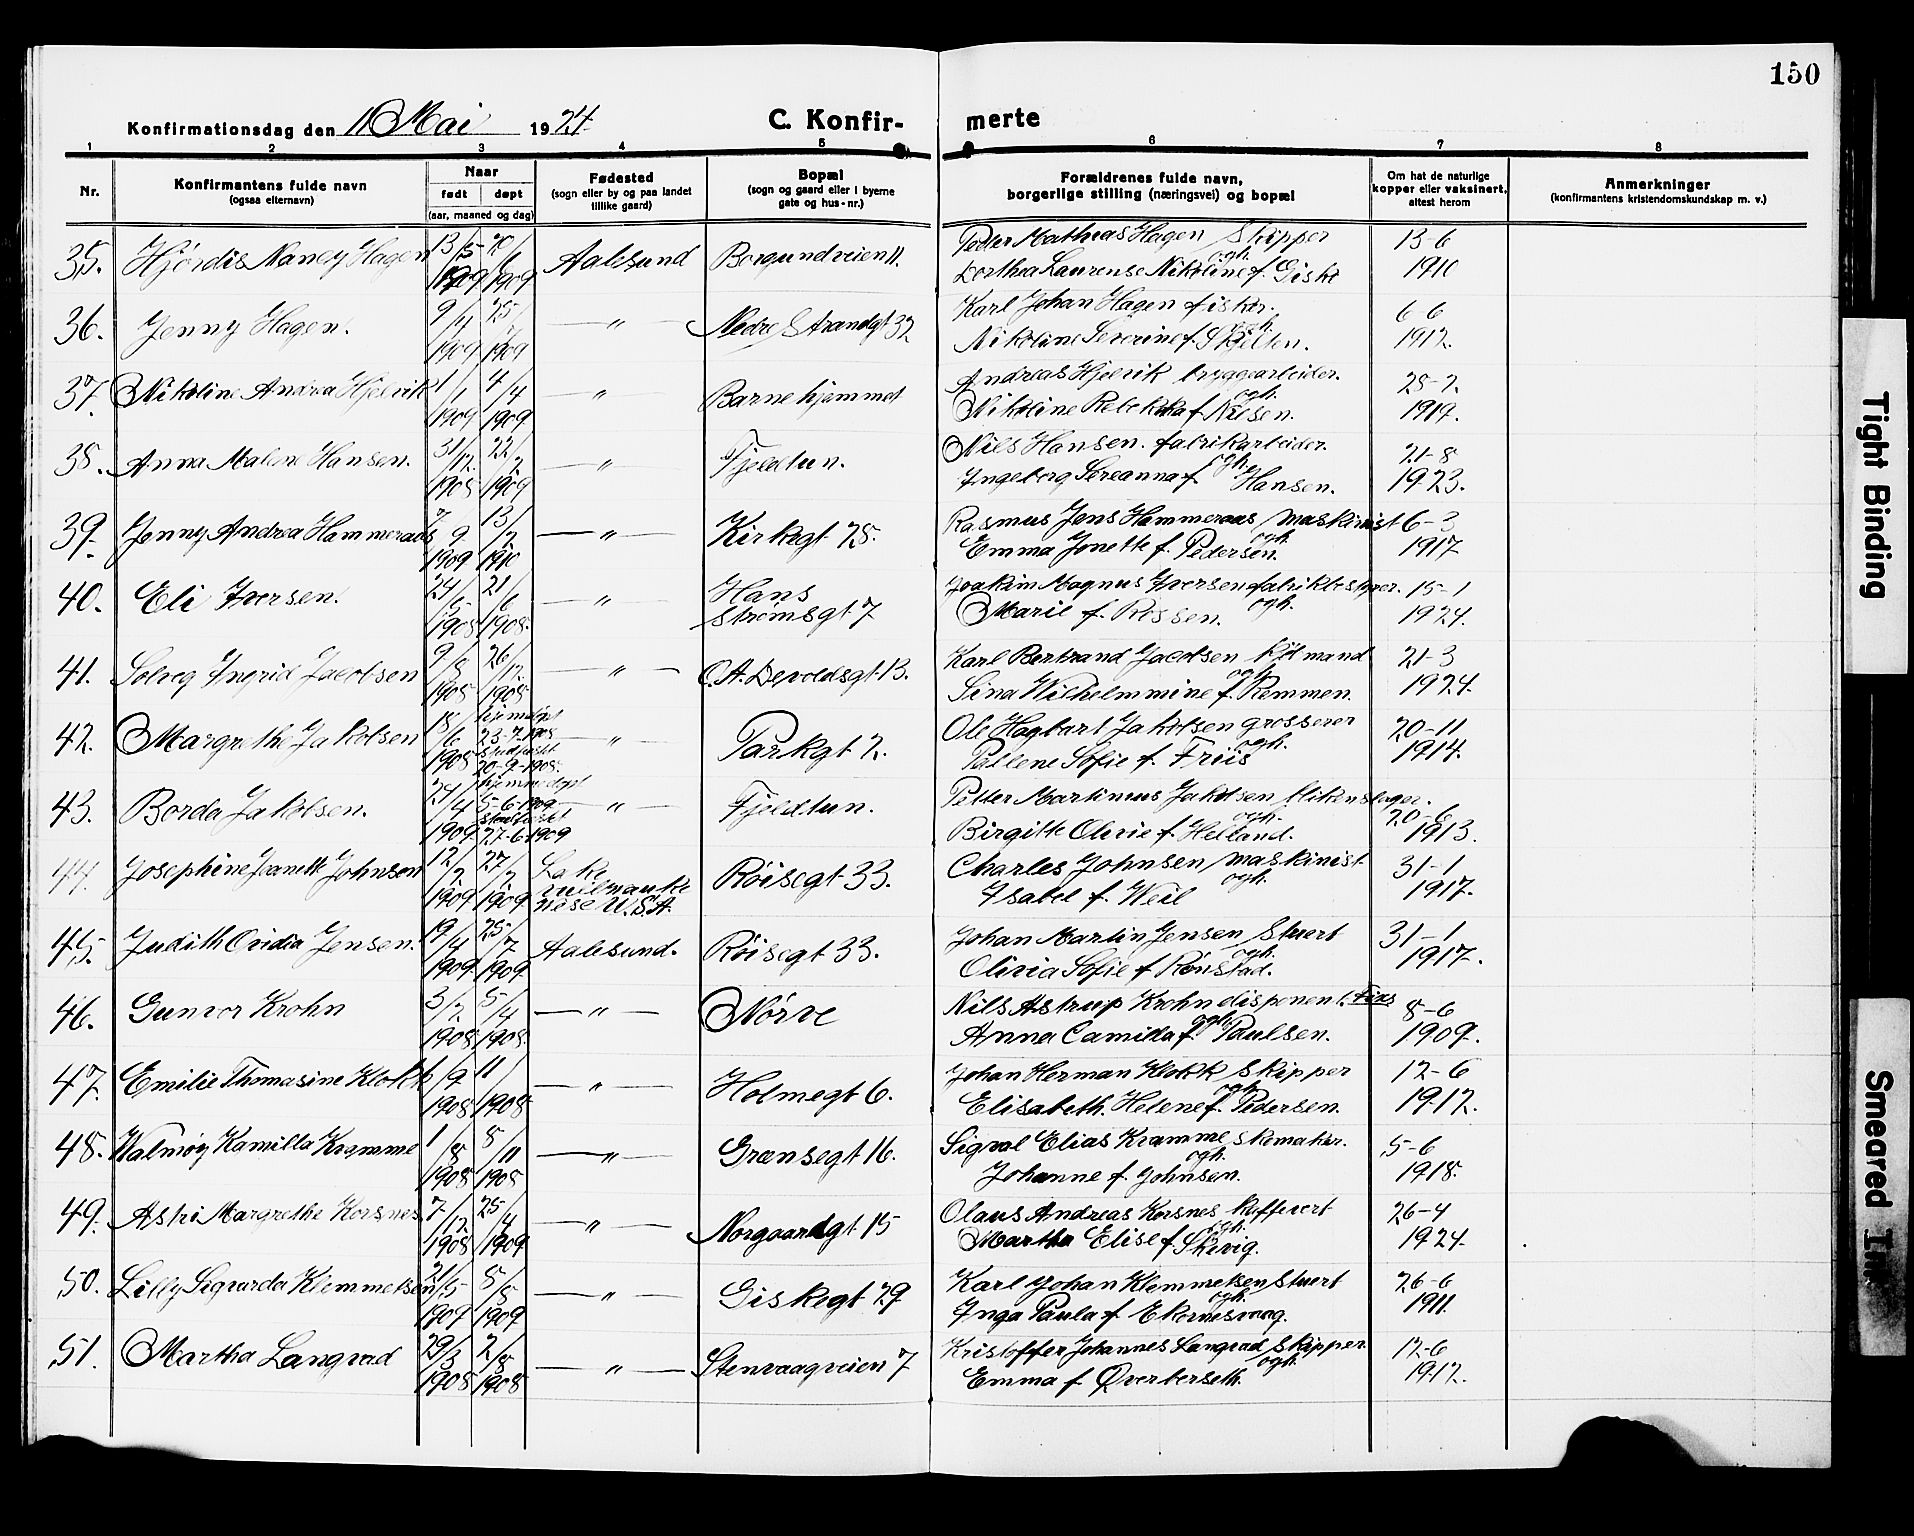 150
Konfirmationsdag den 11 Mai 1924.
C. Konfir-merte
1 2 3 4 5 6 7 8
Nr.
Konfirmantens fulde navn
(ogsaa efternavn)
Naar
født døpt
(aar, maaned og dag)
Fødested
(sogn eller by og paa landet
tillike gaard)
Bopæl
(sogn og gaard eller i byerne
gate og hus-nr.)
Forældrenes fulde navn,
borgerlige stilling (næringsvei) og bopæl
Om hat de naturlige
kopper eller vaksinert,
attest herom
Anmerkninger
(konfirmantens kristendomskundskap m. v.)
35. Hjørdis Nancy Hagen 13/5 1909 20/6 1909 Aalesund Borgundveien 11. Peder Mathias Hagen Skipper 13-6
ogh. Laurense Nikoline f. Giske 1910
36. Jenny Hagen. 9/4 1909 25/7 1909 —"— Nedre Strandgt 32 Karl Johan Hagen fisker. 6-6
ogh. Nikoline Severine f. Skjelten. 1912.
37. Nikoline Andrea Hjelvik 1/1 1909 4/4 1909 —"— Barnehjemmet Andreas Hjelvik bryggearbeider. 28-2
ogh. Nikoline Rebekka f. Nilsen. 1919.
38. Anna Malene Hansen. 31/12. 1908 22/2 1909 —"— Fjeldtun. Nils Hansen. fabrikarbeider. 21-8
ogh. Ingeborg Sereanna f. Hansen. 1923.
39. Jenny Andrea Hammeraas 7/9 1909 13/2 1910 —"— Kirkegt 28. Rasmus Jens Hammeraas maskinist 6-3
ogh. Emma Jonette f. Pedersen. 1917
40. Eli Iversen. 24/5 1908 21/6 1908. —"— Hans Strømsgt 7 Joakim Magnus Iversen fabrikbestyrer. 15-1
ogh. Marie f. Rossen. 1924.
41. Solveg Ingrid Jacobsen 9/8 1908 26/12. 1908. —"— O.A. Devoldsgt. 13. Karl Bertrand Jacobsen kjøbmand 21-3
ogh. Sina Wilhelmmine f. Remmen. 1924.
42. Margrethe Jakobsen 18/6 1908 hjemdøpt 23-7-1908 stadfæstet 20-9-1908. —"— Parkgt 2. Ole Hagbart Jakobsen grosserer 20-11
ogh. Pallene Sofie f. Friis 1914.
43. Borda Jakobsen. 24/4 1909 hjemmedøpt 5-6-1909 stadfæstet 27-6-1909 —"— Fjeldtun. Petter Martinius Jakobsen blikenslager. 20-6
ogh. Birgitte Olivie f. Helland. 1913.
44. Josephine Jeanette Johnsen 12/2 1909 27/2 1909. Lake Røisegt 33. Charles Johnsen maskinist 31-1
U.S.A. ogh. Isabel f. Weil 1917.
45. Judith Ovidia Jensen. 19/4 1909. 25/7 1909. Aalesund. Røisegt 33. Johan Martin Jensen Stuert 31-1
ogh. Olivia Sofie f. Rønstad. 1917.
46. Gunvor Krohn 3/2 1908. 5/4 1908. —"— Nørve Nils Astrup Krohn disponent. 8-6
ogh. Anna Camilla f. Paulsen. 1909.
47. Emilie Thomasine Klokk 6/9 1908 11/ 1908. —"— Holmegt 6. Johan Herman Klokk Skipper 12-6
ogh. Elisabeth. Helene f. Pedersen. 1912.
48. Walmøy Kamilla Kramme 1/8 1908 8/11 1908 —"— Grænsegt 16. Sigval Elias Kramme skomaker. 5-6
ogh. Johanne f. Johnsen. 1918.
49. Astri Margrethe Korsnes 7/12. 1908 25/4 1909 —"— Norgaardgt 15 Olaus Andreas Korsnes kaffevert 26-4
ogh. Martha Elise f. Skivig. 1924.
50. Lilly Sigvarda Klemmetsen 21/5 1909 8/8 1909 —"— Giskegt 29 Karl Johan Klemmetsen Stuert 26-6
ogh. Inga Paula f. Ekornesvaag. 1911.
51. Martha Langvad 29/3 1908 2/8 1908 —"— Stenvaagveien 7 Kristoffer Johannes Langvad Skipper 12-6
ogh. Emma f. Øverberseth. 1912.
Tight Binding
Smeared Ink